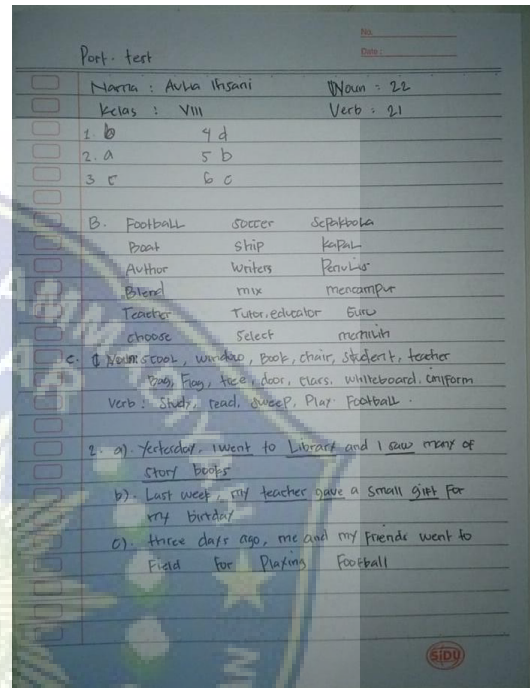 No.
Date :
Port. test
Nama : Avlia Ihsani Noun : 22
Kelas : VIII Verb : 21
1. b 4 d
2. a 5 b
3 c 6 c
B. Football soccer Sepakbola
Boat ship Kapal
Author writers Penulis
Blend mix mencampur
Teacher Tutor, educator Guru
choose Select memilih
C. 1 Noun: stool, window, Book, chair, student, teacher
Bag, Flag, tree, door, class, whiteboard, uniform
Verb : Study, read, sweep, Play Football.
2. a). Yesterday, I went to Library and I saw many of
story books
b). Last week, my teacher gave a small gift for
my birtday
c). three days ago, me and my friends went to
Field for Playing Football
SIDU